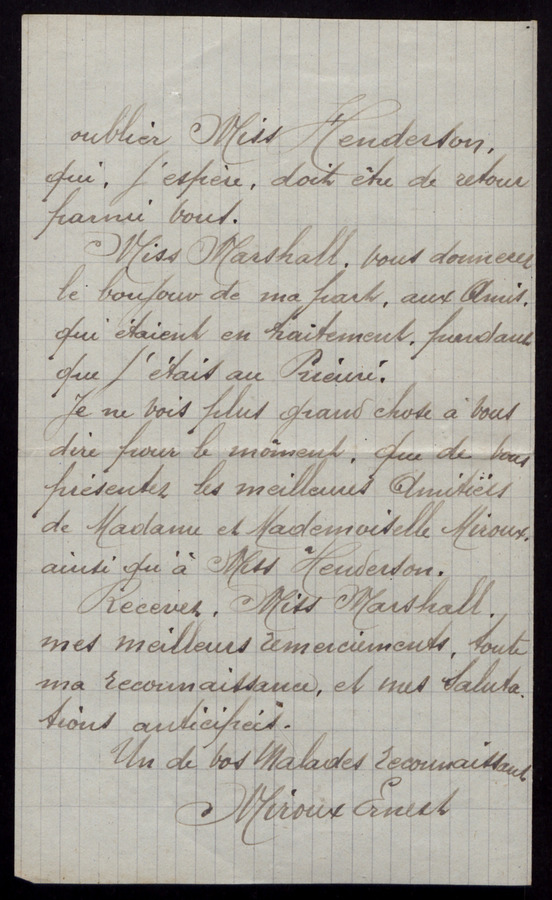 oublier Miss Henderson,
qui, j'espère, doit être de retour
parmi vous.
Miss Marshall, vous donnerez
le bonjour de ma part, aux Amis,
qui étaient en traitement, pendant
que j'étais au Prieuré.
Je ne vois plus grand chose à vous
dire pour le moment, que de vous
présenter les meilleures Amitiées
de Madame et Mademoiselle Miroux,
ainsi qu'à Miss Henderson.
Recevez, Miss Marshall,
mes meilleurs remerciements, toute
ma reconnaissance, et mes Saluta-
tions anticipées.
Un de vos Malades reconnaissant
Miroux Ernest